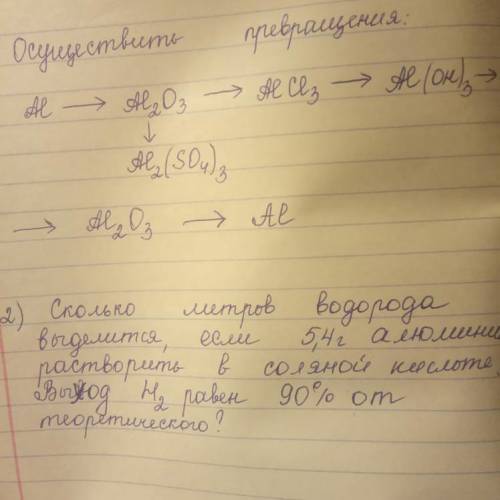 Осуществить превращения:
Al → Al₂O₃ → AlCl₃ → Al(OH)₃ →
↓
Al₂(SO₄)₃
→ Al₂O₃ → Al
2) Сколько метров водорода
выделится, если 5,4г алюмини
растворить в соляной кислоте,
Выход H₂ равен 90% от
теоретического?